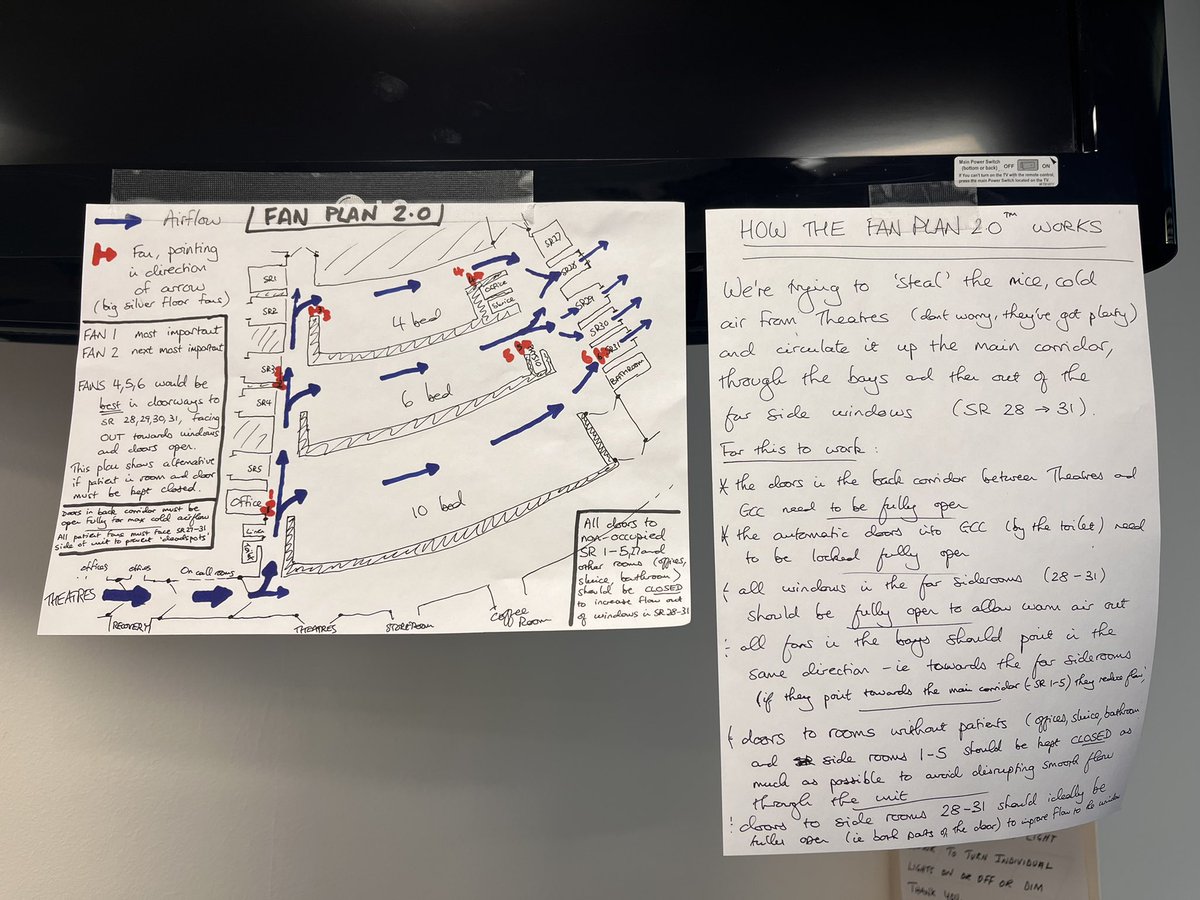 Main Power Switch
(bottom or back)
OFF ON
If You can't turn on the TV with the remote control,
press the main Power Switch located on the TV.
Airflow
FAN PLAN 2.0
Fan, pointing
in direction
of arrow
(big silver floor fans)
FAN 1 most important
FAN 2 next most important
FANS 4,5,6 would be
best in doorways to
SR 28,29,30,31, facing
OUT towards windows
and doors open.
This plan shows alternative
if patient in room and door
must be kept closed.
Doors in back corridor must be
open fully for max cold airflow
All patient fans must face SR27-31
side of unit to prevent 'deadspots'
SR1
SR2
SR3
SR4
SR5
Office
Linen
4 bed
6 bed
10 bed
Office
Sluice
SR27
SR28
SR29
SR30
SR31
BATHROOM
1
2
3
4
5
6
offices
offices
On call rooms
THEATRES
RECOVERY
THEATRES
STOREROOM
Coffee
Room
All doors to
non-occupied
SR 1-5,27 and
other rooms (offices,
sluice, bathroom)
should be CLOSED
to increase flow out
of windows in SR28-31
HOW THE FAN PLAN 2.0™ WORKS
We're trying to 'steal' the nice, cold
air from Theatres (dont worry, they've got plenty)
and circulate it up the main corridor,
through the bays and then out of the
far side windows (SR 28 → 31).
For this to work:
* the doors in the back corridor between Theatres and
ECC need to be fully open
* the automatic doors into ECC (by the toilet) need
to be locked fully open
* all windows in the far siderooms (28-31)
should be fully open to allow warm air out
* all fans in the bays should point in the
same direction - ie towards the far siderooms
(if they point towards the main corridor (~SR 1-5) they reduce flow)
* doors to rooms without patients (offices, sluice, bathroom
and side rooms 1-5 should be kept CLOSED as
much as possible to avoid disrupting smooth flow
through the unit
* doors to side rooms 28-31 should ideally be
fully open (ie both parts of the door) to improve flow to the window
LIGHT
TO TURN INDIVIDUAL
LIGHTS ON OR OFF OR DIM
THANK YOU